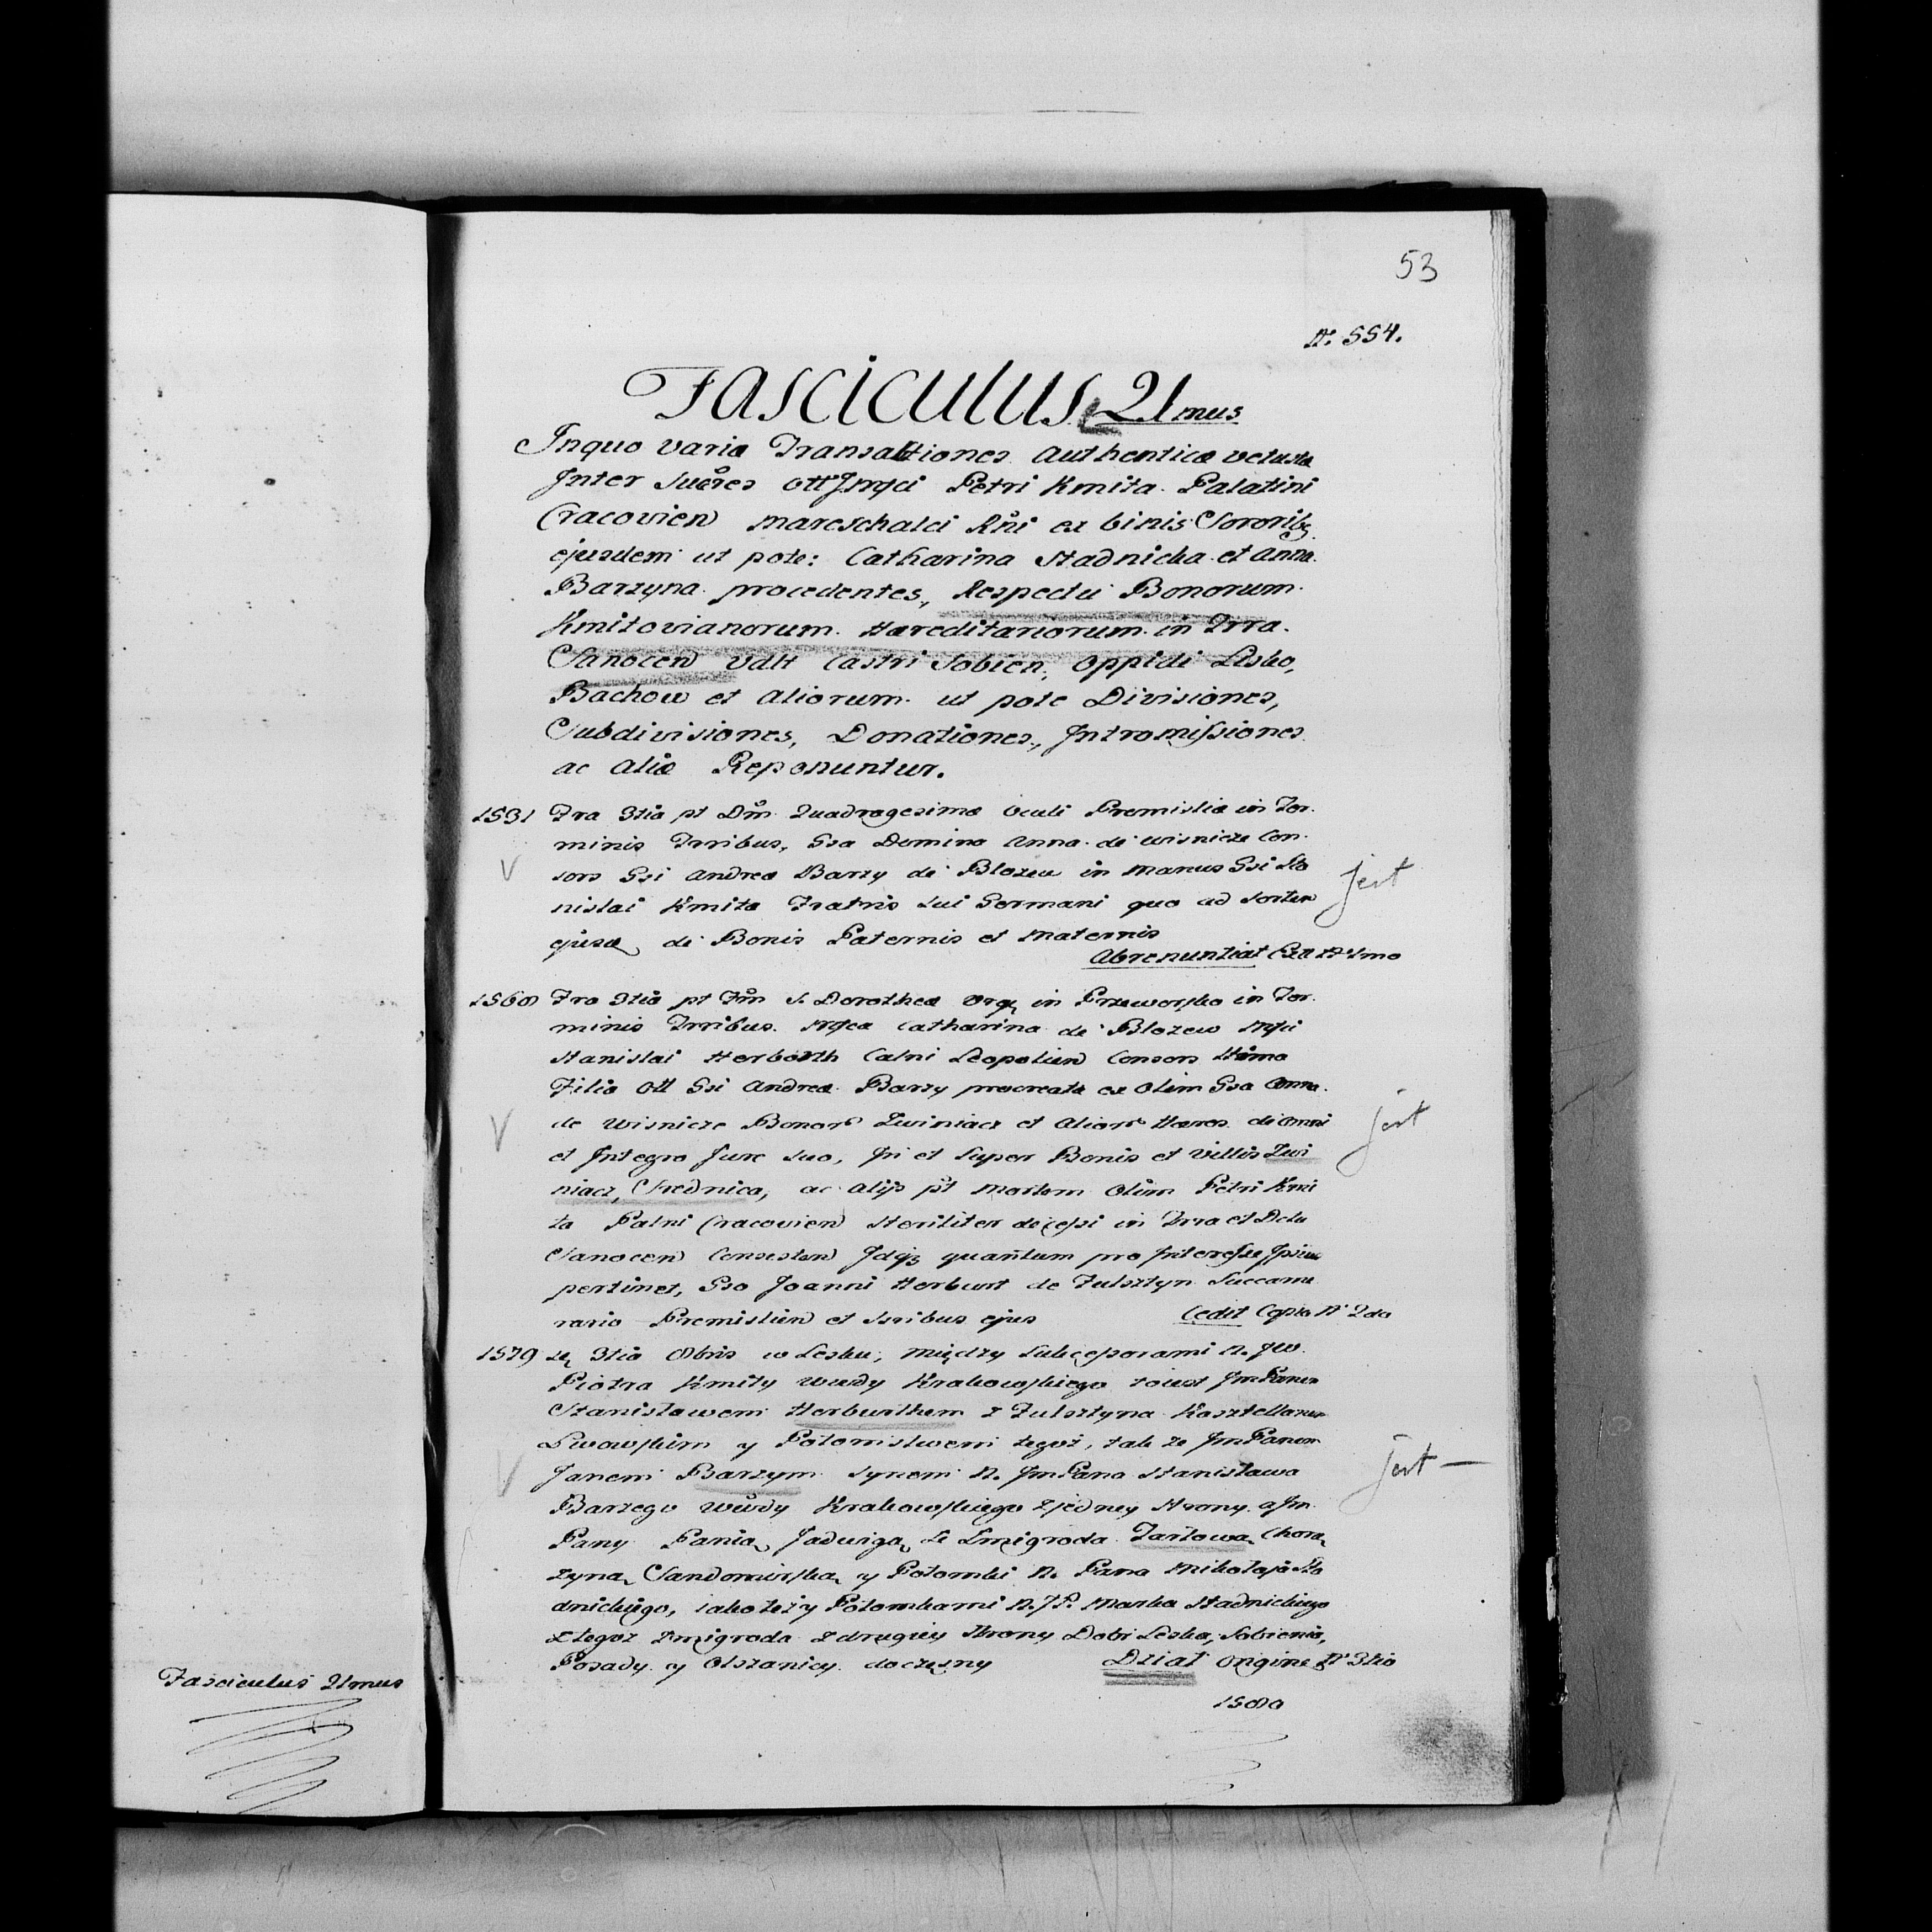 53
N. 554.
Fasciculus 21mus
Inquo variæ Transactiones authenticæ vetustæ
Inter Sucres ott Jmgci Petri Kmita Palatini
Cracovien Mareschalci Rni ex binis Sororibq
ejusdem ut pote: Catharina Stadnicka et Anna
Barzyna procedentes, Respectu Bonorum
Kmitovianorum Hæreditariorum in Trra
Sanocen vdlt Castri Sobien, Oppidi Lesko,
Bachow et aliorum ut pote Divisiones,
Subdivisiones, Donationes, Intromissiones
ac aliæ Reponuntur.
1531 Fra 3tia pt Dm Quadragesimæ Oculi Premisliæ in Ter-
minis Trribus, Gsa Domina Anna de Wisnicze Con-
sors Gsi Andreæ Barzy de Blozew in manus Gsi Sta
nislai Kmita Fratris sui Germani quo ad Sortem
de Bonis Paternis et Maternis
jest
Abrenuntiat No 1mo
1560 Fra 3tia pt Fm S. Dorotheæ Vrgs in Przeworsko in Ter-
minis Trribus. Mgca Catharina de Blozew Mgci
Stanislai Herborth Catni Leopolien Consors
Filia ott Gsi Andreæ Barzy procreata ex Olim Gsa Anna
de Wisnicze Bonor Zwiniacz et alior Hæres de omni
et Integro Jure suo, in et super Bonis et villis Zwi
niacz, Srednica, ac alijs pt mortem Olim Petri Kmi
ta Palni Cracovien steriliter decessi in Trra et Dctu
Sanocen Consisten Idqz quantum pro Interesse Ipsius
pertinet, Gso Joanni Herburt de Fulsztyn Succame
rario Premislien et Ssribus ejus
jest
Cedit Copia No 2do
1579 3tia Obris w Lesku, między Sukcesorami n. JW.
Piotra Kmity Wwdy Krakowskiego toiest Jm Panem
Stanisławem Herburthem z Fulsztyna Kasztellanem
Lwowskim y Potomstwem tegoż, tak ze Jm Panem
Janem Barzym Synem n. Jm Pana Stanisława
Barzego Wwdy Krakowskiego z jedney strony a Jm
Pany Panią Jadwigą ze Zmigroda Tarłową Chorą
zyną Sandomirską y Potomki n. Pana Mikołaja Sta
dnickiego, iakoteż y Potomkami n. JP. Marka Stadnickiego
z tegoż Zmigroda z drugiey strony Dobr Leska, Sobienia,
Posady y Olszanicy doczesny
jest —
Dział Origine No 3tio
1580
Fasciculus 21mus